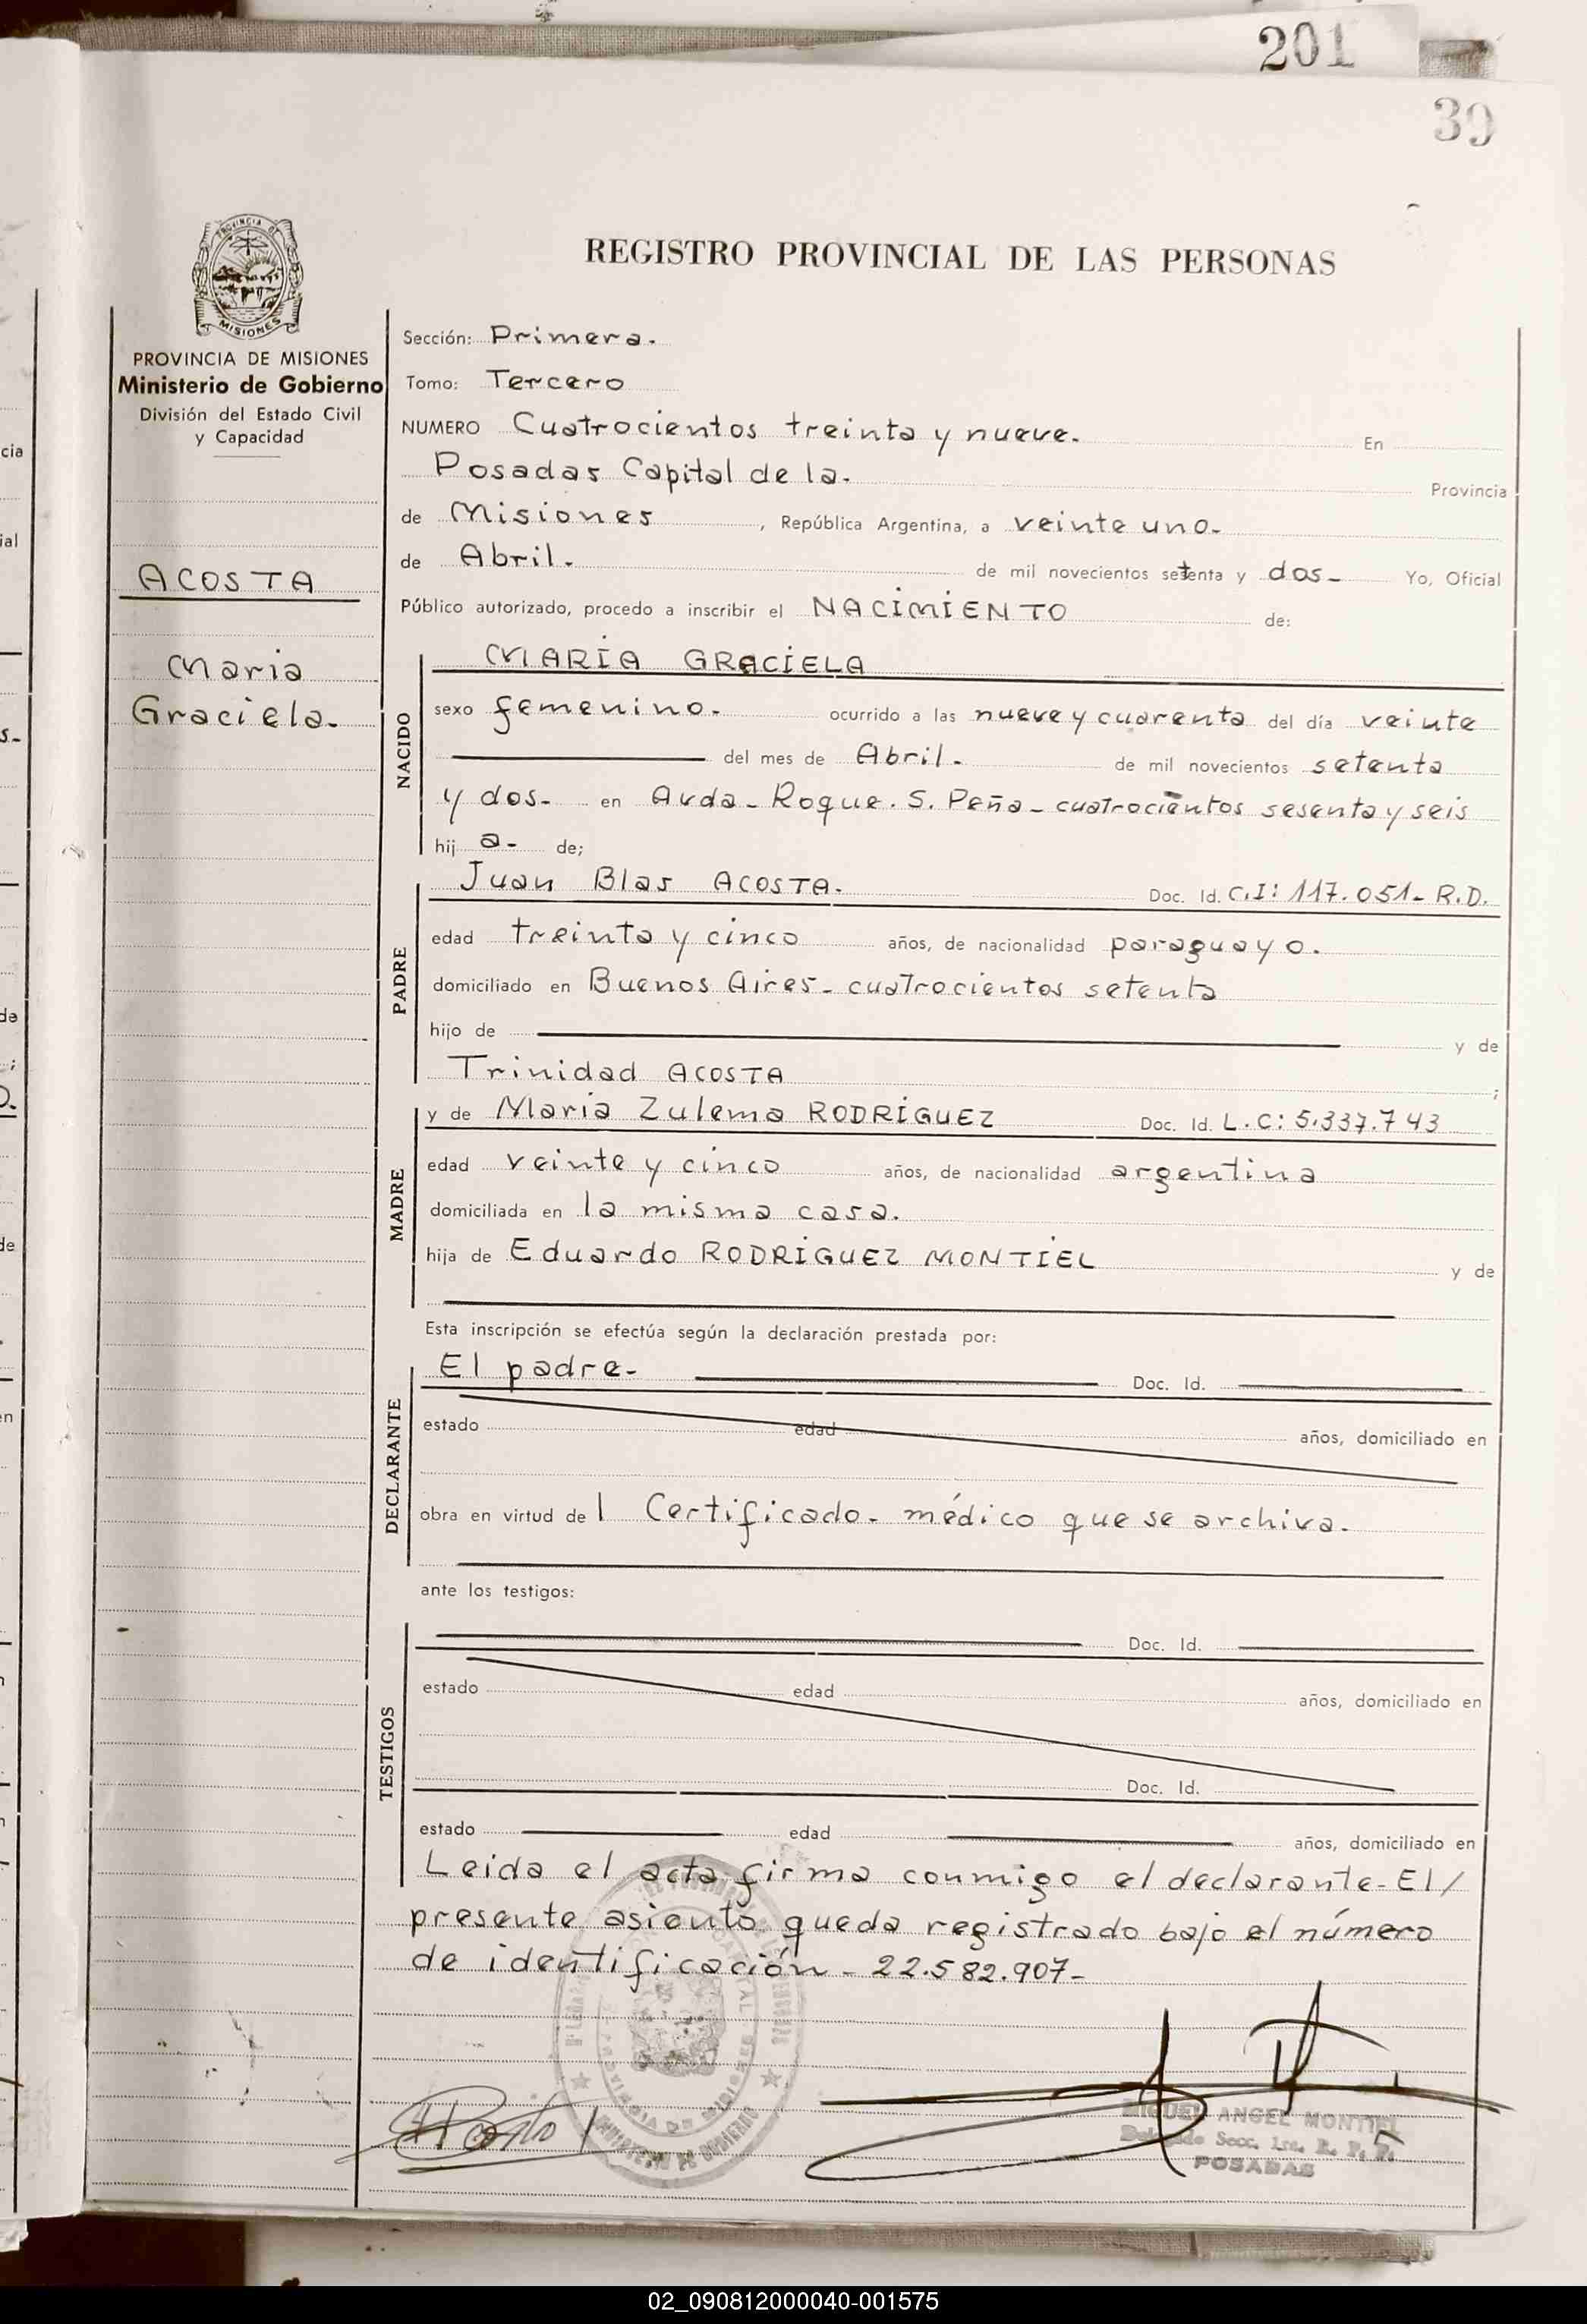 201
39
REGISTRO PROVINCIAL DE LAS PERSONAS
PROVINCIA DE
MISIONES
PROVINCIA DE MISIONES
Ministerio de Gobierno
División del Estado Civil
y Capacidad
ACOSTA
Maria
Graciela.-
Sección: Primera.
Tomo: Tercero
NUMERO Cuatrocientos treinta y nueve. En
Posadas Capital de la. Provincia
de Misiones, República Argentina, a veinte uno.
de Abril. de mil novecientos setenta y dos- Yo, Oficial
Público autorizado, procedo a inscribir el NACIMIENTO de:
NACIDO
MARIA GRACIELA
sexo femenino. ocurrido a las nueve y cuarenta del día veinte
del mes de Abril. de mil novecientos setenta
y dos- en Avda- Roque. S. Peña- cuatrocientos sesenta y seis
hij a- de;
PADRE
Juan Blas ACOSTA. Doc. Id. C.I: 117.051- R.D.
edad treinta y cinco años, de nacionalidad paraguayo.
domiciliado en Buenos Aires- cuatrocientos setenta
hijo de y de
Trinidad ACOSTA ;
MADRE
y de Maria Zulema RODRIGUEZ Doc. Id. L.C: 5.337.743
edad veinte y cinco años, de nacionalidad argentina
domiciliada en la misma casa.
hija de Eduardo RODRIGUEZ MONTIEL y de
Esta inscripción se efectúa según la declaración prestada por:
DECLARANTE
El padre- Doc. Id.
estado edad años, domiciliado en
obra en virtud de l Certificado- médico que se archiva.
ante los testigos:
TESTIGOS
Doc. Id.
estado edad años, domiciliado en
Doc. Id.
estado edad años, domiciliado en
Leida el acta firma conmigo el declarante- El /
presente asiento queda registrado bajo el número
de identificación- 22.582.907-
MIGUEL ANGEL MONTIEL
Secc. 1ra. R. P. P.
POSADAS
02_090812000040-001575